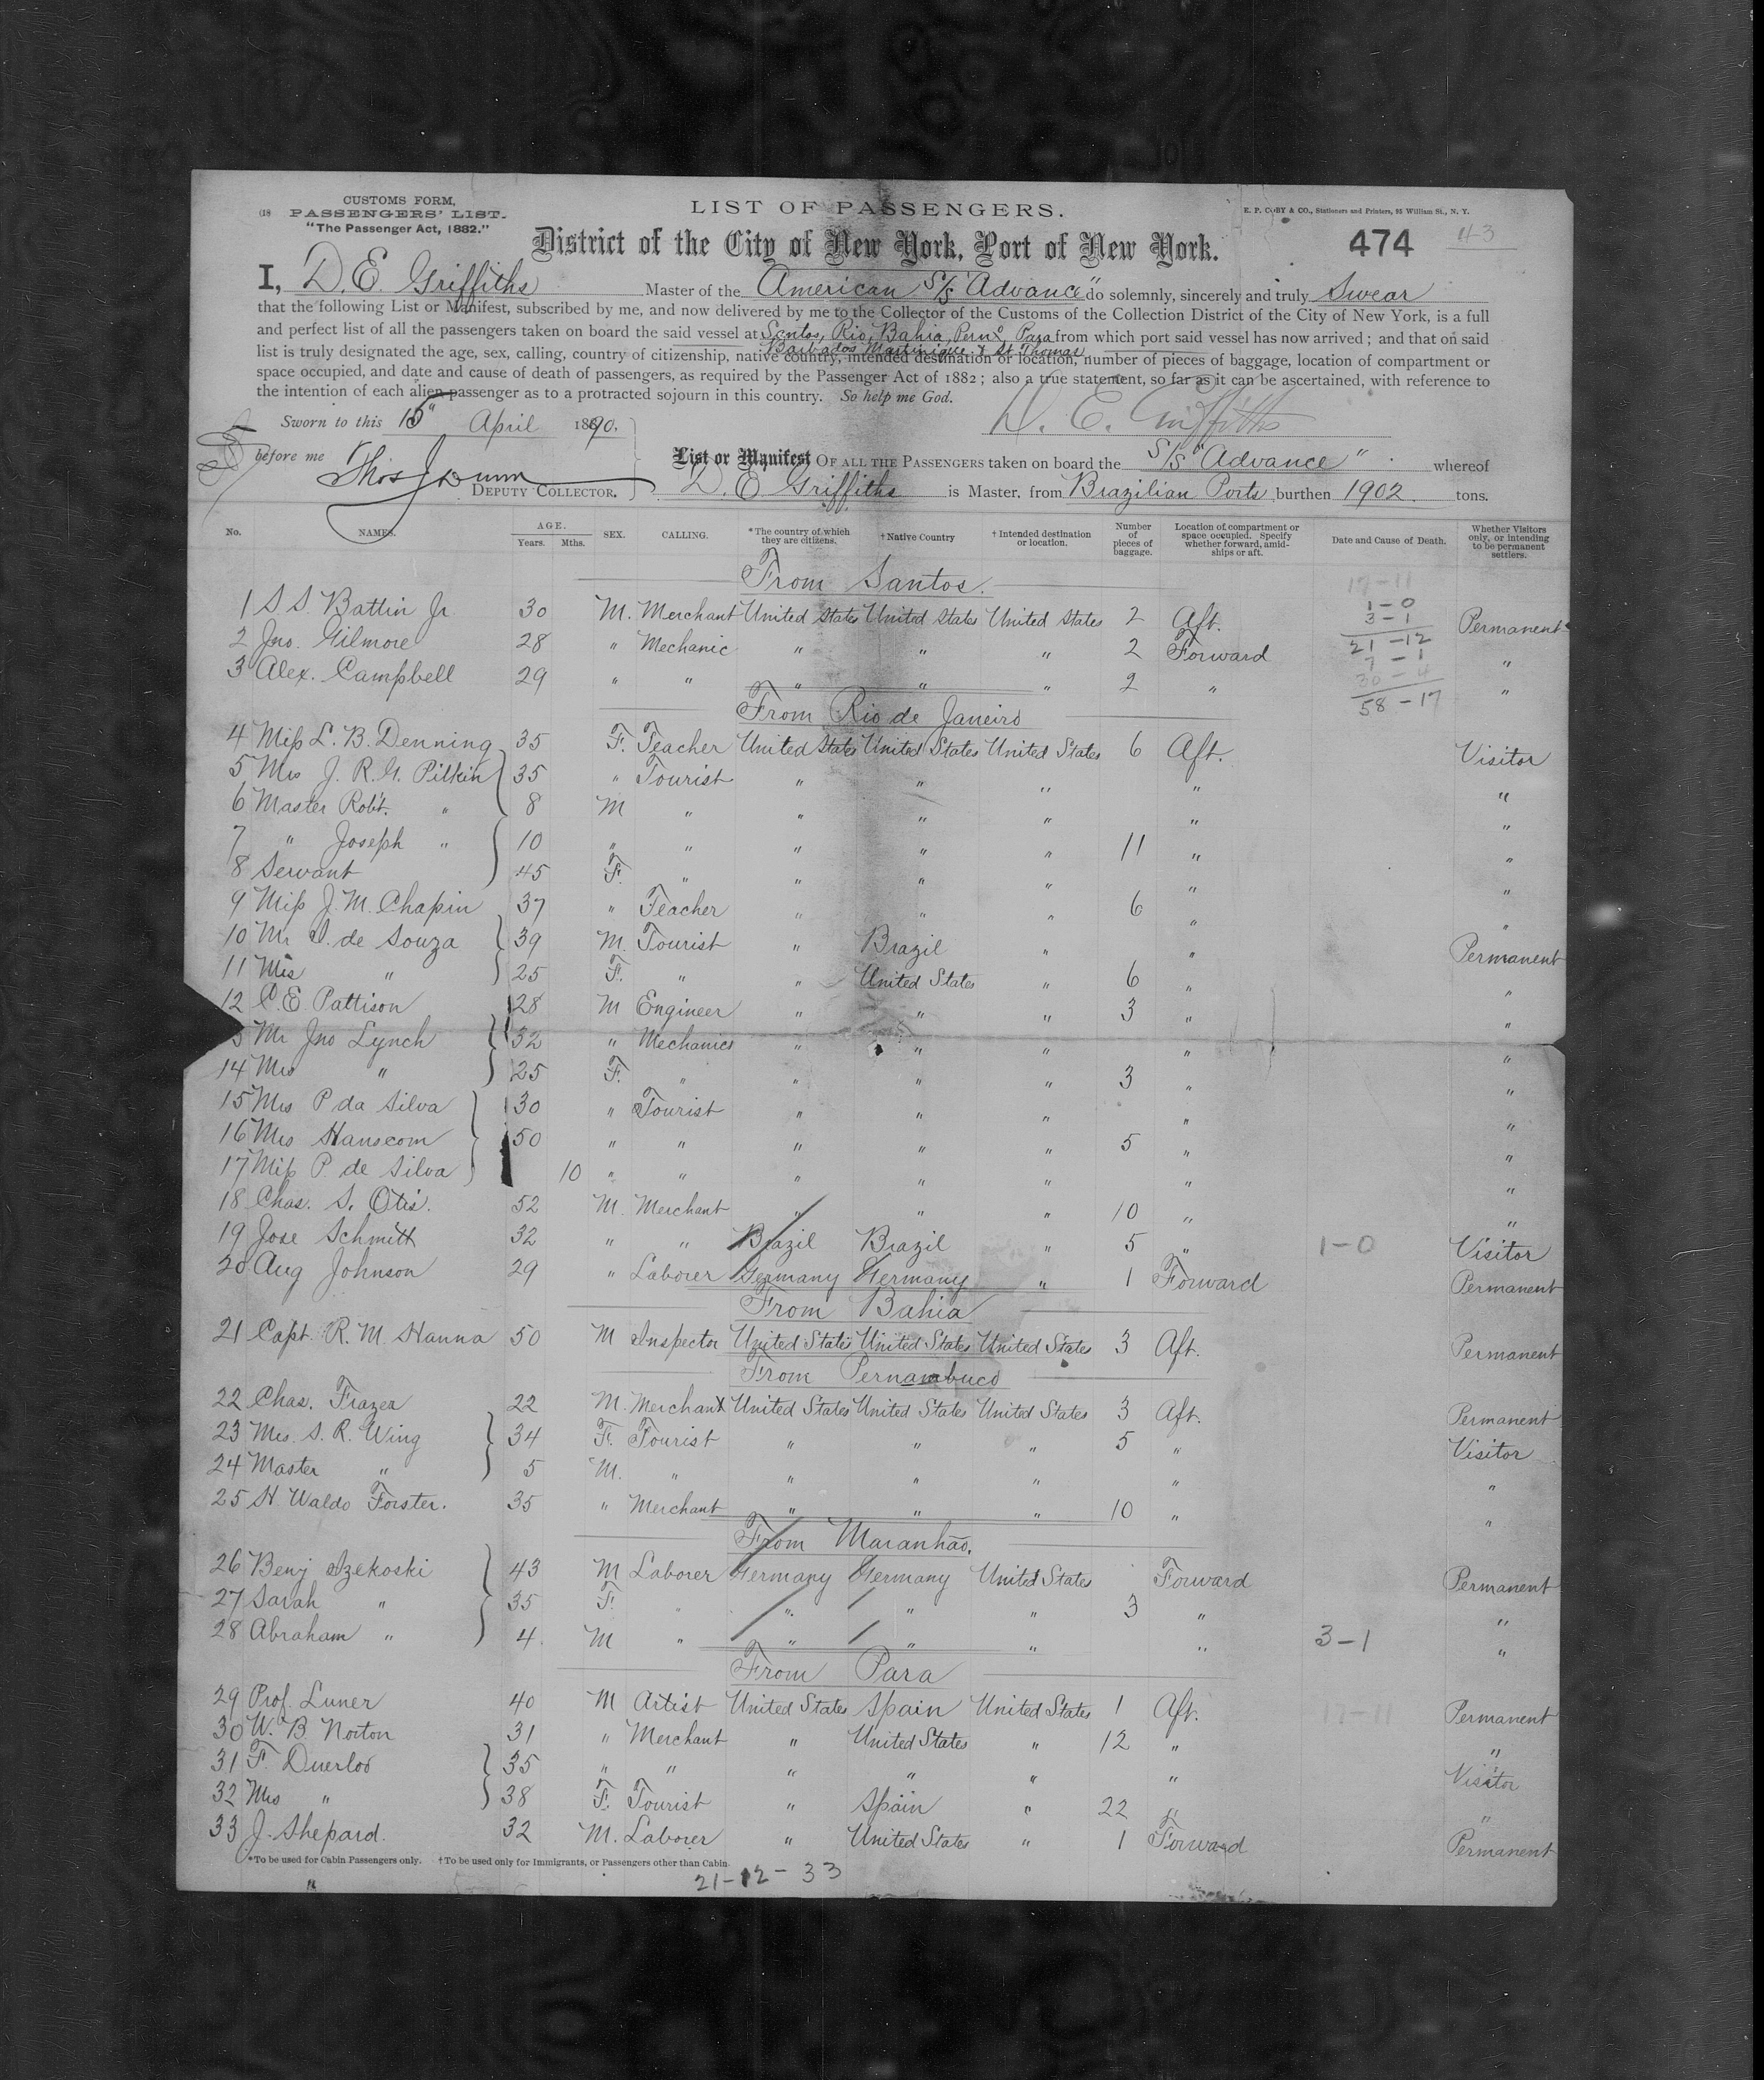 CUSTOMS FORM,
PASSENGERS' LIST.
"The Passenger Act, 1882."
LIST OF PASSENGERS.
E. P. COBY & CO., Stationers and Printers, 95 William St., N. Y.
District of the City of New York, Port of New York.
474
43
I, D. E. Griffiths Master of the American S/S "Advance" do solemnly, sincerely and truly Swear
that the following List or Manifest, subscribed by me, and now delivered by me to the Collector of the Customs of the Collection District of the City of New York, is a full
and perfect list of all the passengers taken on board the said vessel at Santos, Rio, Bahia, Pernº, Para from which port said vessel has now arrived; and that on said
Barbados Martinique & St Thomas
list is truly designated the age, sex, calling, country of citizenship, native country, intended destination or location, number of pieces of baggage, location of compartment or
space occupied, and date and cause of death of passengers, as required by the Passenger Act of 1882; also a true statement, so far as it can be ascertained, with reference to
the intention of each alien passenger as to a protracted sojourn in this country. So help me God.
D. E. Griffiths
Sworn to this 15" April 1890.
before me
Thos J Dunn
DEPUTY COLLECTOR.
List or Manifest OF ALL THE PASSENGERS taken on board the S/S "Advance" whereof
D. E. Griffiths is Master, from Brazilian Ports burthen 1902 tons.
No. NAMES. AGE. Years. Mths. SEX. CALLING. *The country of which they are citizens. †Native Country †Intended destination or location. Number of pieces of baggage. Location of compartment or space occupied. Specify whether forward, amidships or aft. Date and Cause of Death. Whether Visitors only, or intending to be permanent settlers.
From Santos.
17-11
1-0
3-1
21-12
7-1
30-4
58-17
1 S. S. Battin Jr. 30 M. Merchant United States United States United States 2 Aft. Permanent
2 Jno. Gilmore 28 " Mechanic " " " 2 Forward "
3 Alex. Campbell 29 " " " " " 2 " "
From Rio de Janeiro
4 Miss L. B. Denning 35 F. Teacher United States United States United States 6 Aft. Visitor
5 Mrs J. R. G. Pitkin 35 " Tourist " " " " "
6 Master Robt. " 8 M " " " " " "
7 " Joseph " 10 " " " " " 11 " "
8 Servant 45 F. " " " " " "
9 Miss J. M. Chapin 37 " Teacher " " " 6 " "
10 Mr I. de Souza 39 M. Tourist " Brazil " " Permanent
11 Mrs " 25 F. " " United States " 6 " "
12 C. E. Pattison 28 M Engineer " " " 3 " "
3 Mr Jno Lynch 32 " Mechanics " " " " "
14 Mrs " 25 F. " " " " 3 " "
15 Mrs P da Silva 30 " Tourist " " " " "
16 Mrs Hanscom 50 " " " " " 5 " "
17 Miss P. de Silva 10 " " " " " " "
18 Chas. S. Otis. 52 M. Merchant " " " 10 " "
19 Jose Schmitt 32 " " Brazil Brazil " 5 " 1-0 Visitor
20 Aug Johnson 29 " Laborer Germany Germany " 1 Forward Permanent
From Bahia
21 Capt. R. M. Hanna 50 M Inspector United States United States United States 3 Aft. Permanent
From Pernambuco
22 Chas. Frazer 22 M. Merchant United States United States United States 3 Aft. Permanent
23 Mrs. S. R. Wing 34 F. Tourist " " " 5 " Visitor
24 Master " 5 M. " " " " " "
25 H. Waldo Forster. 35 " Merchant " " " 10 " "
From Maranhão.
26 Benj Azekoski 43 M Laborer Germany Germany United States Forward Permanent
27 Sarah " 35 F. " " " " 3 " "
28 Abraham " 4. M " " " " " 3-1 "
From Para
29 Prof. Luner 40 M Artist United States Spain United States 1 Aft. 17-11 Permanent
30 W. B. Norton 31 " Merchant " United States " 12 " "
31 F. Duerloo 35 " " " " " " Visitor
32 Mrs " 38 F. Tourist " Spain " 22 " "
33 J. Shepard. 32 M. Laborer " United States " 1 Forward Permanent
*To be used for Cabin Passengers only. †To be used only for Immigrants, or Passengers other than Cabin.
21-12-33